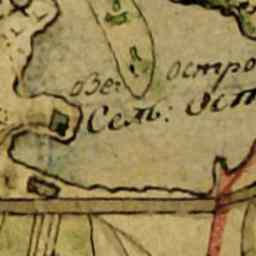 озе: остро
Сель: Ост